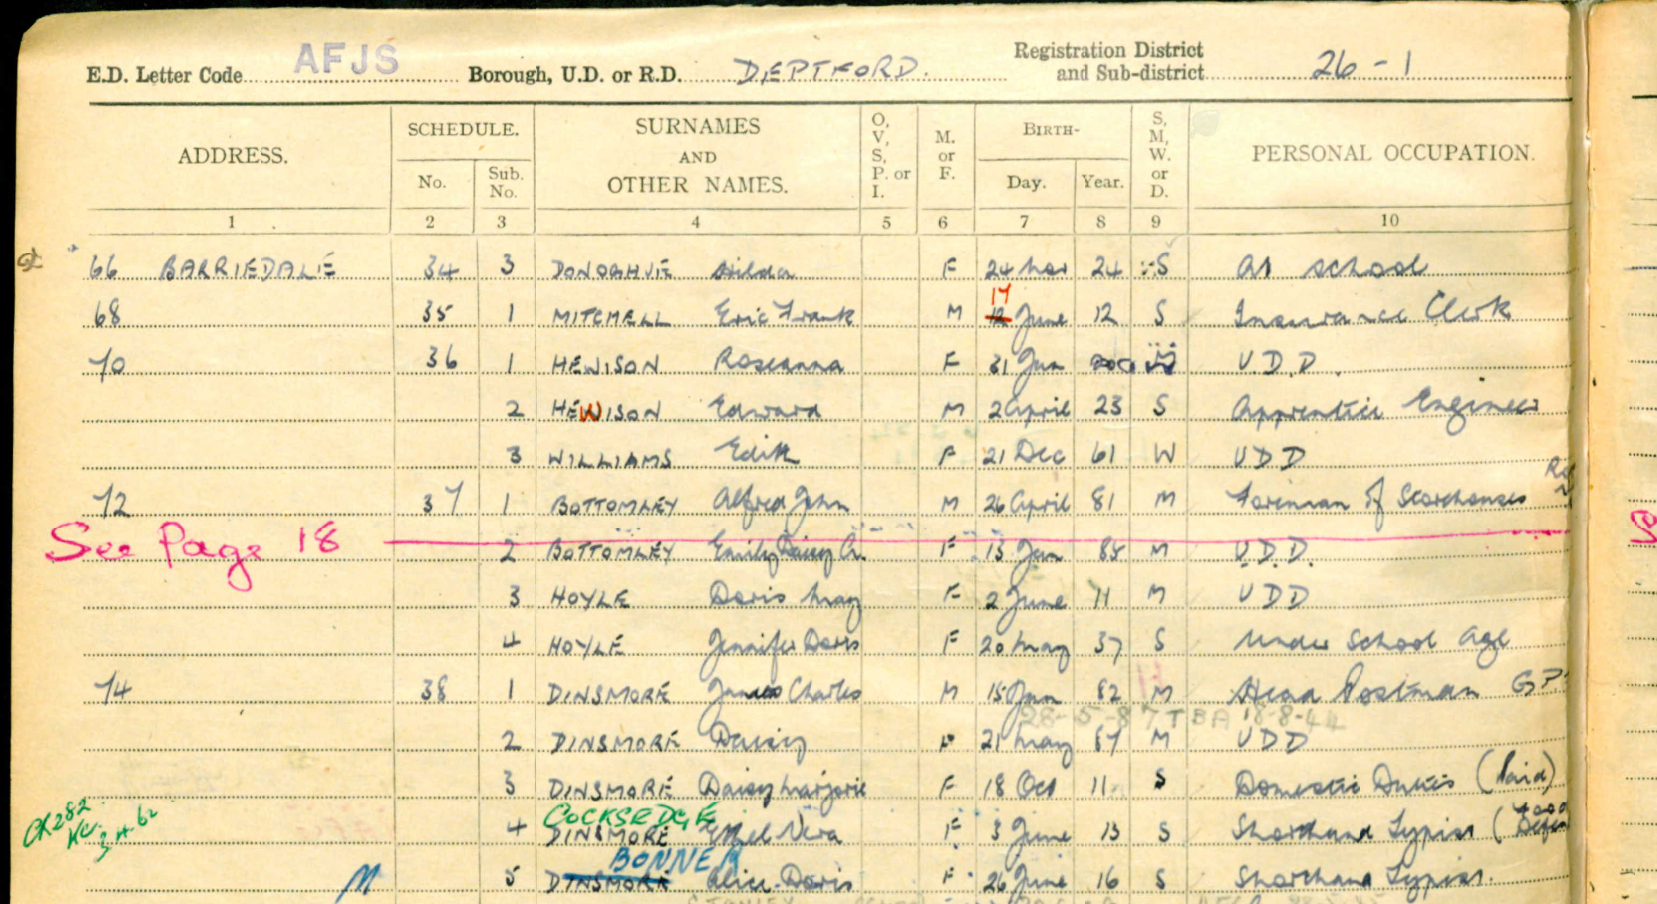 E.D. Letter Code AFJS Borough, U.D. or R.D. DEPTFORD. Registration District and Sub-district 26-1
ADDRESS. SCHEDULE. No. Sub. No. SURNAMES AND OTHER NAMES. O, V, S, P. or I. M. or F. BIRTH- Day. Year. S, M, W. or D. PERSONAL OCCUPATION.
1 2 3 4 5 6 7 8 9 10
66 BARRIEDALE 34 3 DONOGHUE Hilda F 24 Mar 24 S At school
17
68 35 1 MITCHELL Eric Frank M 12 June 12 S Insurance Clerk
70 36 1 HEWISON Roseanna F 31 Jan U.D.D.
2 HEWISON Edward M 2 April 23 S Apprentice Engineer
3 WILLIAMS Edith F 21 Dec 61 W UDD
72 37 1 BOTTOMLEY Alfred John M 26 April 81 M Foreman of Storehouses
See Page 18
2 BOTTOMLEY Emily Daisy A. F 13 Jan 85 M U.D.D.
3 HOYLE Doris May F 2 June 11 M UDD
4 HOYLE Jennifer Doris F 20 May 37 S Under School Age
74 38 1 DINSMORE James Charles M 15 Jan 82 M Head Postman GP
28-5-87 TBA 18-8-44
2 DINSMORE Daisy F 21 May 87 M UDD
3 DINSMORE Daisy Marjorie F 18 Oct 11 S Domestic Duties (Paid)
COCKSEDGE
CR282
3.4.62
4 DINSMORE Ethel Vera F 3 June 13 S Shorthand Typist (
BONNER
M 5 DINSMORE Alice Doris F 26 June 16 S Shorthand Typist.